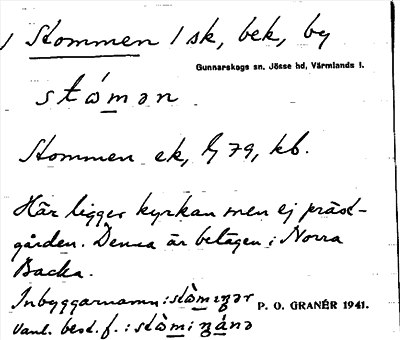 Stommen 1 sk, bek, by
Gunnarskogs sn. Jösse hd, Värmlands l.
Stommen ek, by 79, kb.
Här ligger kyrkan men ej präst-
gården. Denna är belägen i Norra
Backa.
Inbyggarnamn:
P. O. GRANÉR 1941.
Vanl. best. f.: